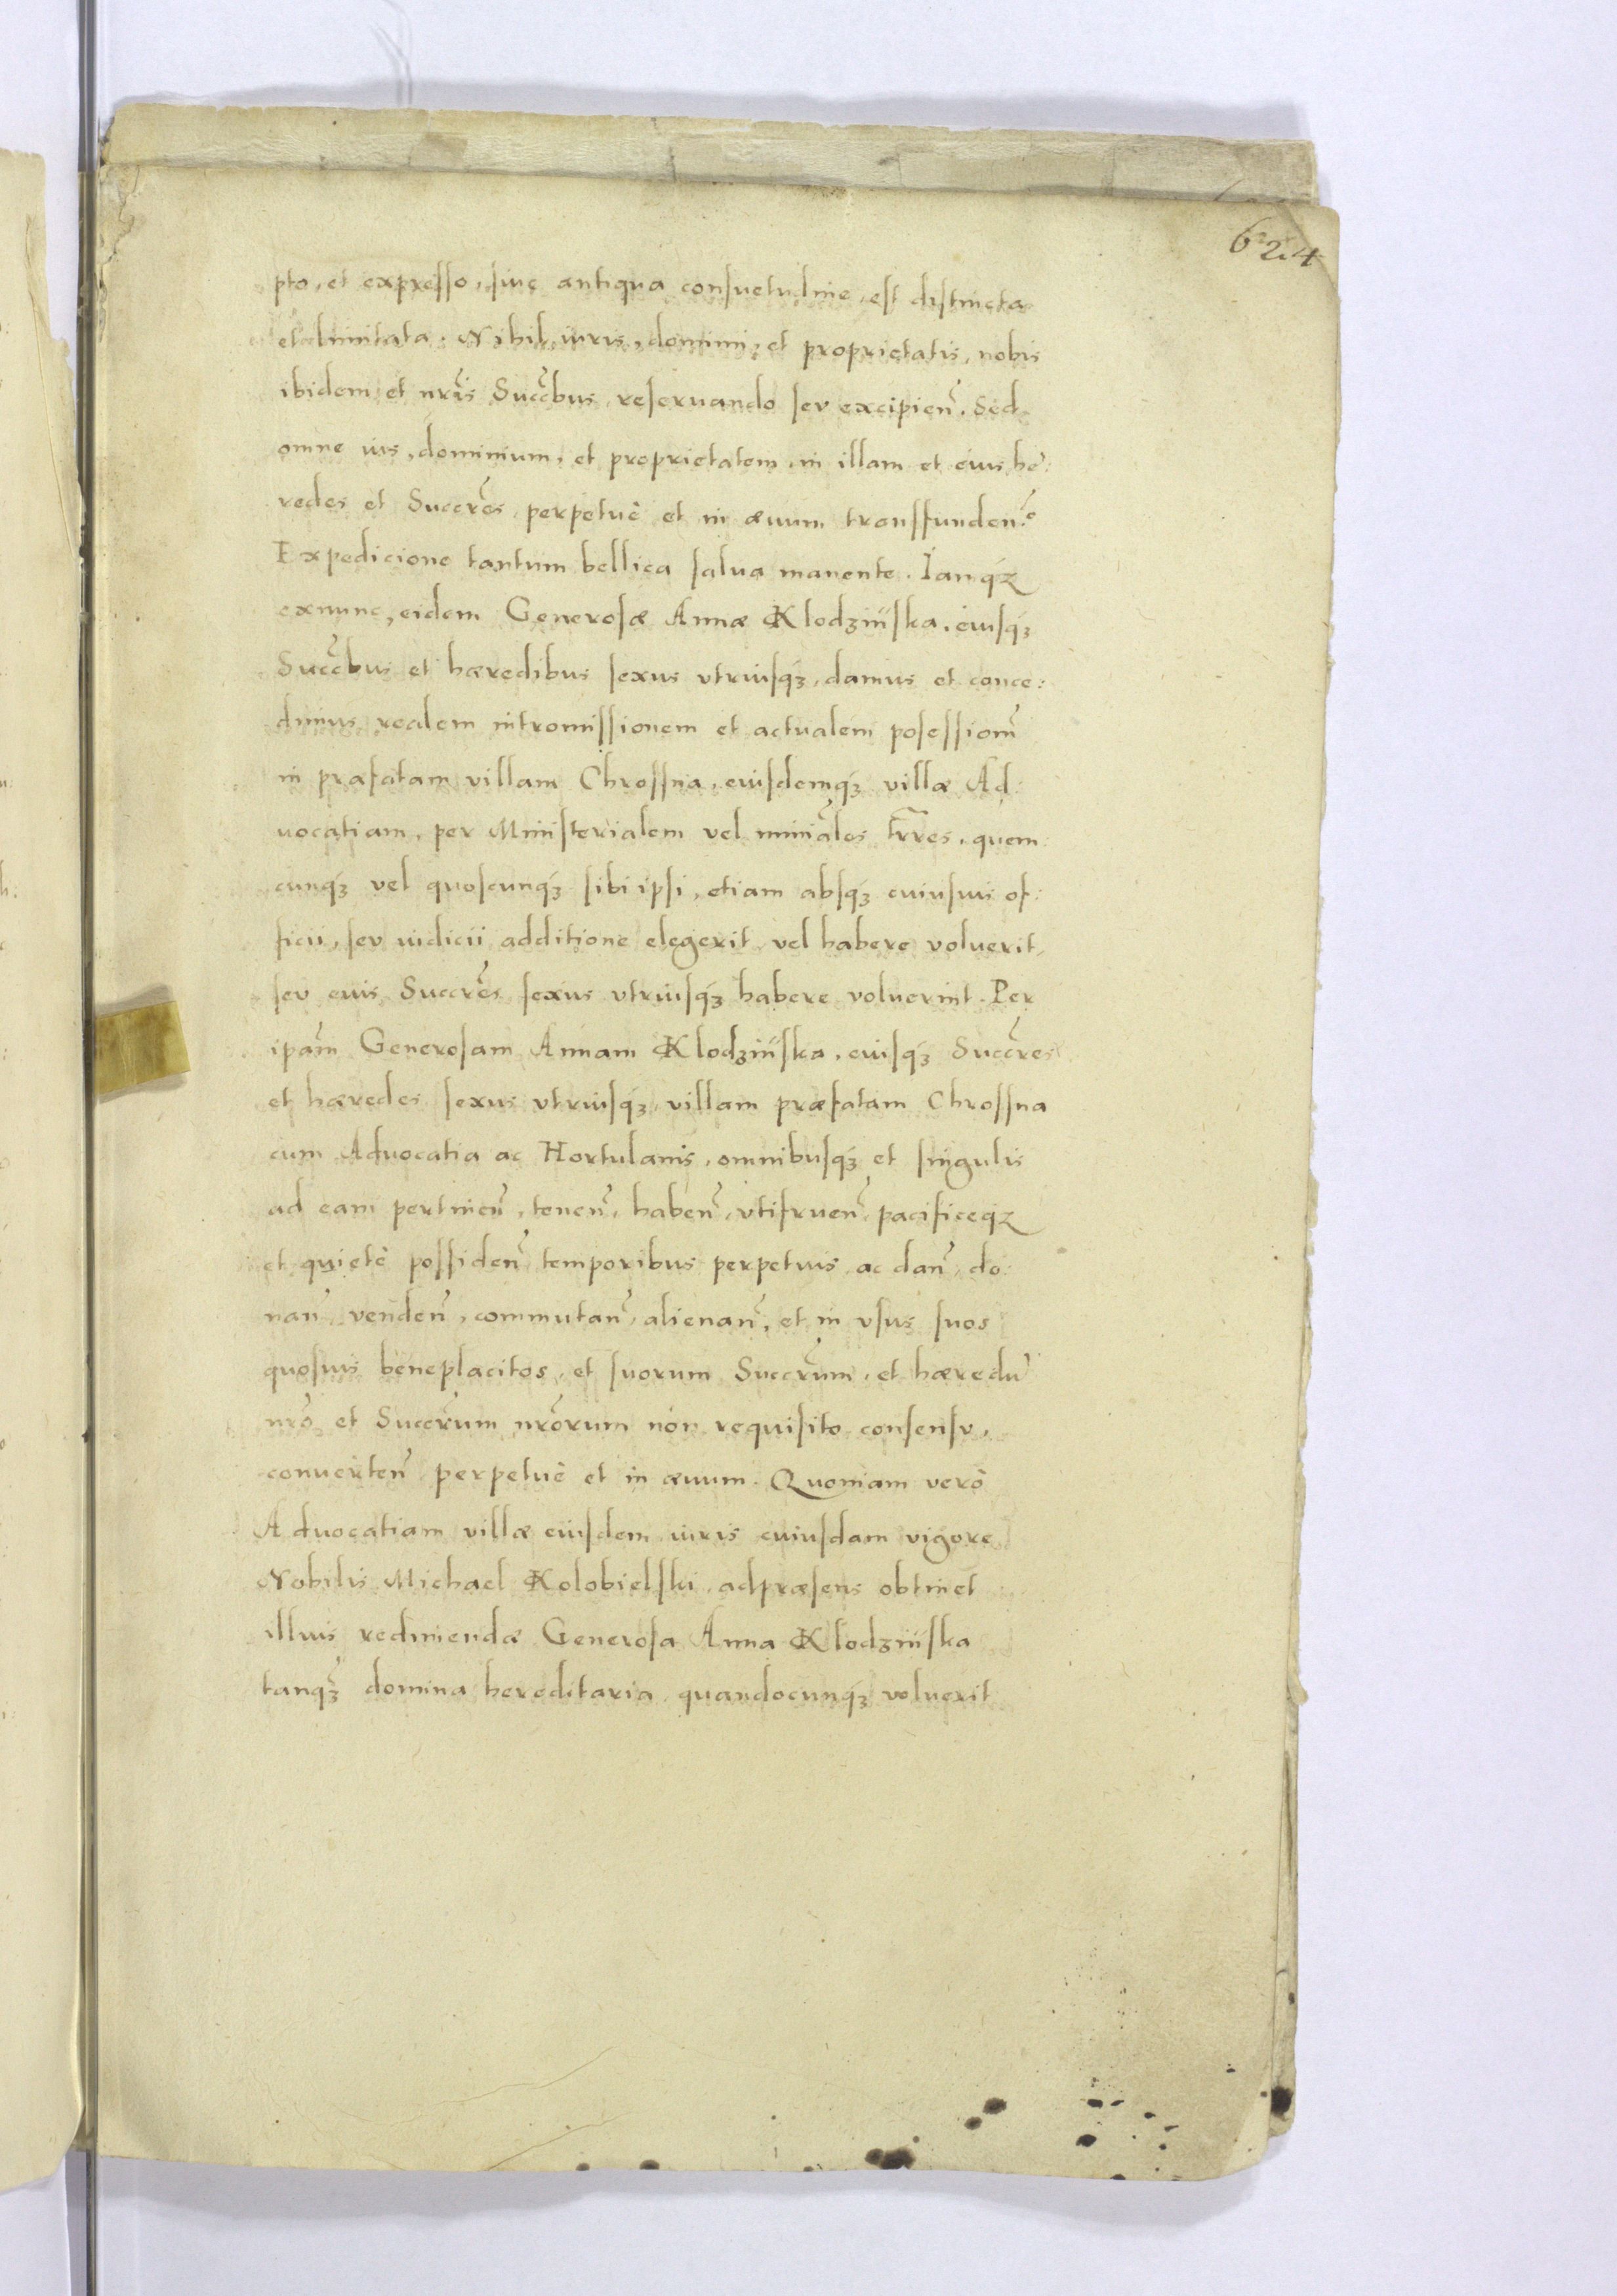 624
pto, et expresso, siue antiqua consuetudine, est distincta
et limitata. Nihil iuris, dominii, et proprietatis, nobis
ibidem et nr̃is Succ̃bus reseruando seu excipien̄. Sed
omne ius, dominium, et proprietatem, in illam et eius he:
redes et Succr̃es perpetuè et in æuum transfunden̄.
Expedicione tantum bellica salua manente. Iamq́ꝫ
exnunc, eidem Generosæ Annæ Klodzinska, eiusq́ꝫ
Succ̃bus et hæredibus sexus vtriusq́ꝫ, damus et conce:
dimus realem intromissionem et actualem posession̄
in præfatam villam Chrossna, eiusdemq́ꝫ villæ Ad:
uocatiam, per Ministerialem vel miniãles Tr̃res, quem:
cunq́ꝫ vel quoscunq́ꝫ sibi ipsi, etiam absq́ꝫ cuiusuis of:
ficii, seu iudicii additione elegerit vel habere voluerit,
seu eius Succr̃es sexus vtriusq́ꝫ habere voluerint. Per
ipam̃ Generosam Annam Klodzinska, eiusq́ꝫ Succr̃es
et hæredes sexus vtriusq́ꝫ, villam præfatam Chrossna
cum Aduocatia ac Hortulanis, omnibusq́ꝫ et singulis
ad eam pertinen̄, tenen̄, haben̄, vtifruen̄, pacificeq́ꝫ
et quietè possiden̄ temporibus perpetuis ac dan̄, do:
nan̄ venden̄, commutan̄, alienan̄, et in vsus suos
quosuis beneplacitos, et suorum Succr̃um, et hæredū
nr̃o et Succr̃um nr̃orum non requisito consensu,
conuerten̄ perpetuè et in æuum. Quoniam verò
Aduocatiam villæ eiusdem iuris cuiusdam vigore
Nobilis Michael Kolobielski adpræsens obtinet
illius redimendæ Generosa Anna Klodzinska
tanq́ꝫ domina hereditaria quandocunq́ꝫ voluerit